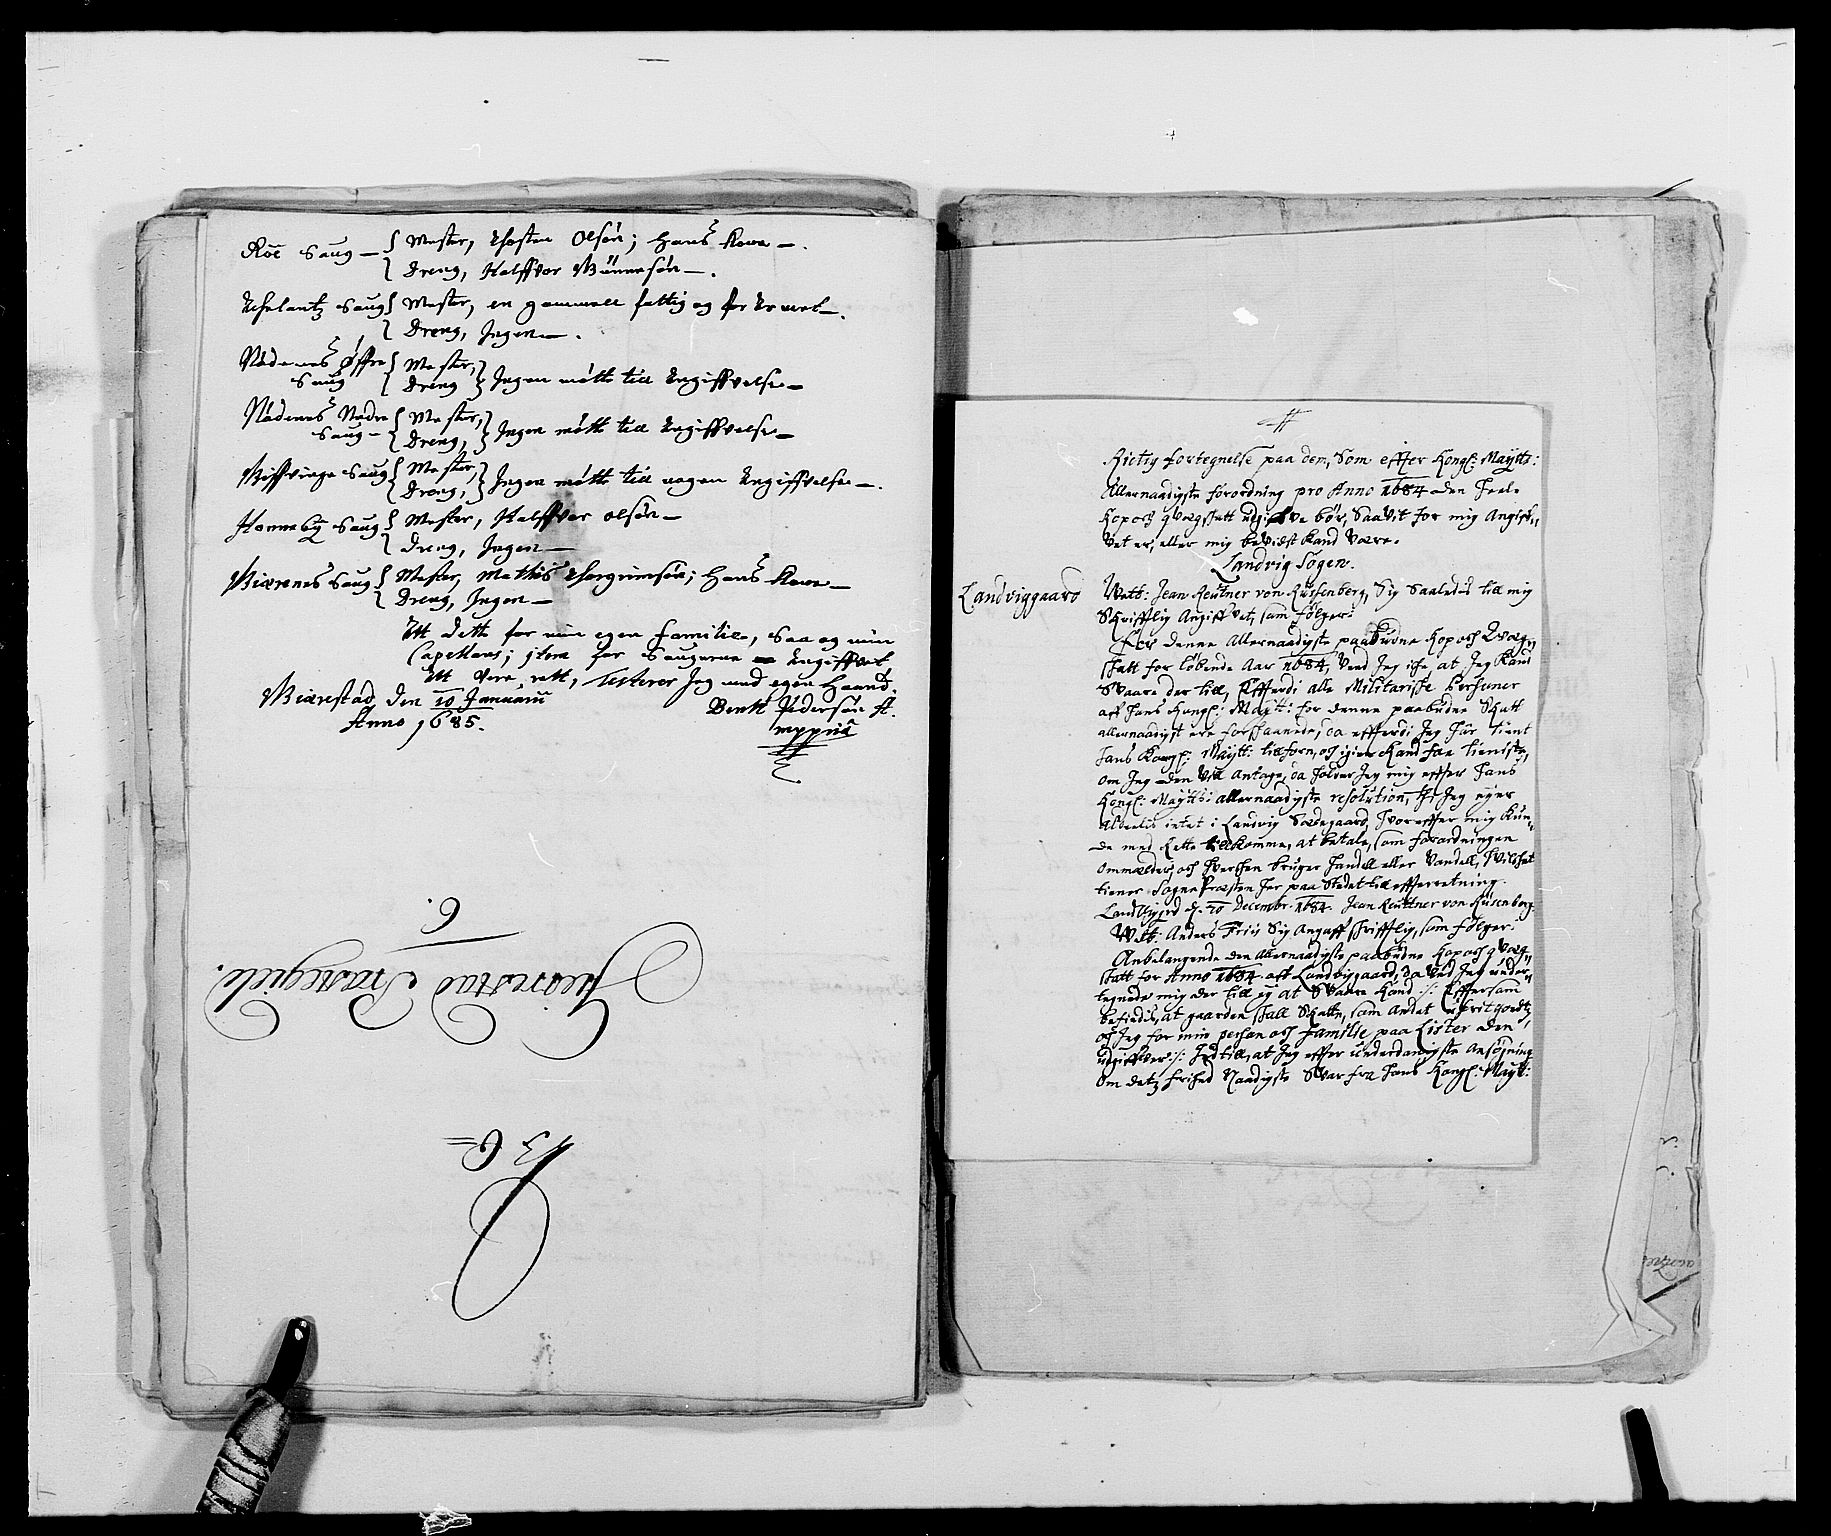 Røe Saug — Mester, Thosten Olsøn; hans Kone —.
Dreng, Halffvor Bunnesøn —.
Schelantz Saug Mester, en gammell fattig og
Dreng, Ingen —.
Nødenes Øffre Mester,
Saug Dreng Ingen møtte till Angiffvelse —
Nødenes Nedre Mester,
Saug — Dreng, Ingen møtte till Angiffvelse —
Saug Mester,
Dreng, Ingen møtte till nogen Angiffvelse —.
Saug Mester, Halffvor olsøn —
Dreng, Ingen —
Saug Mester, Mathis Thorgrimsøn; hans Kone —
Dreng, Ingen —
Att dette for min egen familie, saa og min
Capellans; item for Saugerne Angiffvet
Att vere rett, testerer Jeg med egen haand.
Biærestad, den 10 Januarii
Anno 1685.
Bentt Pedersøn
mppria
6.
Præstegield.
136=
Rictig fortegnelse paa dem, Som effter Kongl: Maÿttz:
Allernaadigste forordning pro Anno 1684 den heele
Kopoch qvegskatt udgifve bør, Saavit for mig Angif¬
vet er, eller mig beviist kand være.
Landvig Sogen.
Landviggaard
Velb: Jean Reutner von Rüssenberg, Sig Saaledis till mig
Skrifftlig Angiffvet, som følger:
For denne Allernaadigste paabudne Kopoch Qveg¬
skatt for løbende Aar 1684, veed Jeg iche, at Jeg kand
Svaare der till, Effterdi alle Militariske Personer
aff hans Kongl: Maytt: for denne paabudne Skatt
allernaadigst ere forskaanede, da effterdi Jeg har tient
hans Kongl: Maÿtt: tillforn, och igien kand faa tieniste,
om Jeg den vill Antage, da holder Jeg mig effter hans
Kongl: Maÿttz: allernaadigste resolution, thi Jeg eyer
Aldeelis intet i Landvig Sædegaard, hvoreffter mig kun¬
de med Rette tillkomme, at betale, som forordningen
ommælder, och hverchen bruger handell eller vandell, hvilchet
tiener SognePræsten her paa Stedet till effterretning.
Landvigg d. 20 Decembr. 1684. Jean Reuttner von Rüsenberg.
Velb: Anders Friis Sig Angaff skrifftlig, som følger:
Anbelangende den Allernaadigste paabudne Kopoch qveg¬
skatt for Anno 1684 aff Landviggaard, da veed Jeg under¬
tegnede mig der till eÿ at Svaare kand ./. Effter som
befindis, at gaarden skall Skatte, som Andet ufrit goedtz,
och Jeg for min person och familie paa Lister den
udgiffver ./. Indtill, at Jeg effter underdanigste ansøgning
om detz frihed Naadigste Svar fra hans Kongl: Maytt: